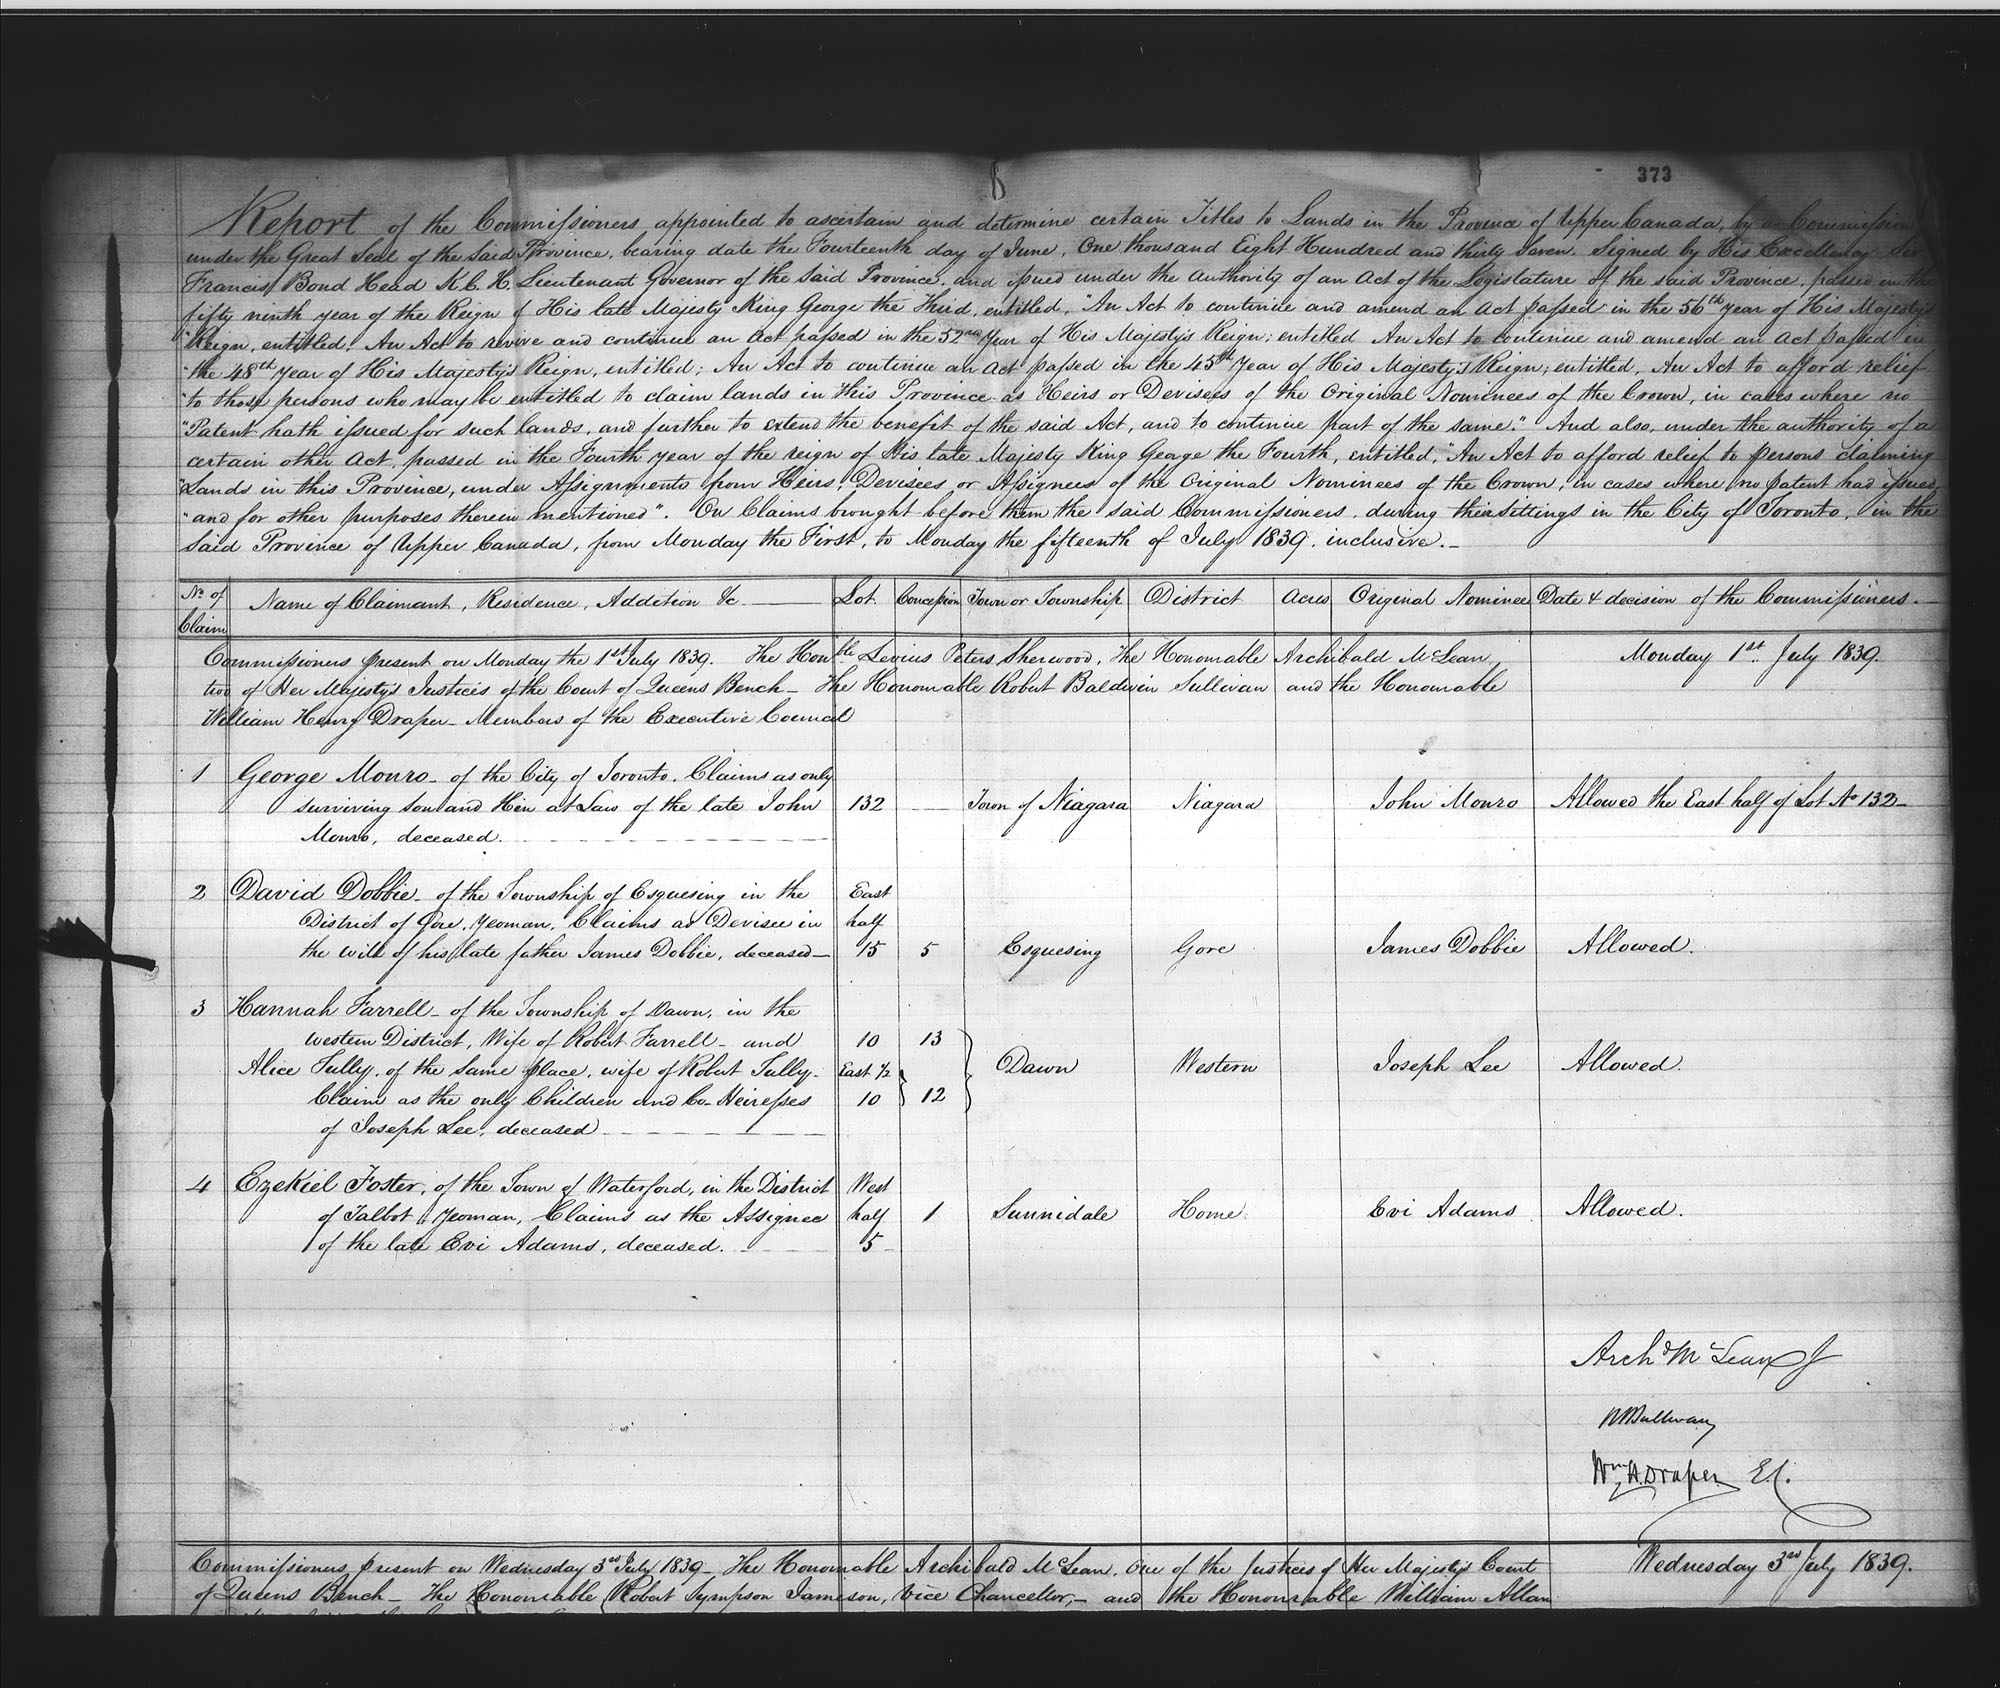 373
Report of the Commissioners appointed to ascertain and determine certain Titles to Lands in the Province of Upper Canada, by a Commission
under the Great Seal of the said Province, bearing date the Fourteenth day of June, One thousand Eight Hundred and thirty Seven. Signed by His Excellency Sir
Francis Bond Head K.C.H. Lieutenant Governor of the said Province, and issued under the authority of an Act of the Legislature of the said Province, passed in the
fifty ninth year of the Reign of His late Majesty King George the Third, entitled, "An Act to continue and amend an Act passed in the 56th year of His Majesty's
"Reign, entitled, An Act to revive and continue an Act passed in the 52nd Year of His Majesty's Reign; entitled An Act to continue and amend an Act passed in
"the 48th year of His Majesty's Reign, entitled; An Act to continue an Act passed in the 45th Year of His Majesty's Reign; entitled, An Act to afford relief
"to those persons who may be entitled to claim lands in this Province as Heirs or Devisees of the Original Nominees of the Crown, in cases where no
"Patent hath issued for such lands, and further to extend the benefit of the said Act, and to continue part of the same." And also, under the authority of a
certain other Act, passed in the Fourth year of the reign of His late Majesty King George the Fourth, entitled, "An Act to afford relief to persons claiming
"Lands in this Province, under Assignments from Heirs, Devisees or Assignees of the Original Nominees of the Crown, in cases where no patent had issued,
"and for other purposes therein mentioned". On Claims brought before them the said Commissioners, during their sittings in the City of Toronto, in the
said Province of Upper Canada, from Monday the First, to Monday the fifteenth of July 1839. inclusive.
No. of Claim Name of Claimant, Residence, Addition &c Lot. Concession Town or Township District Acres Original Nominee Date & decision of the Commissioners.
Commissioners present on Monday the 1st July 1839. The Honble Levius Peters Sherwood, The Honourable Archibald McLean, Monday 1st. July 1839.
two of Her Majesty's Justices of the Court of Queens Bench - The Honourable Robert Baldwin Sullivan and the Honourable
William Henry Draper - Members of the Executive Council
1 George Monro - of the City of Toronto. Claims as only
surviving son and Heir at Law of the late John 132 Town of Niagara Niagara John Monro Allowed the East half of Lot No 132
Monro, deceased.
2 David Dobbie - of the Township of Esquesing in the East
District of Gore, Yeoman, Claims as Devisee in half
the will of his late father James Dobbie, deceased 15 5 Esquesing Gore James Dobbie Allowed.
3 Hannah Farrell - of the Township of Dawn, in the
Western District, Wife of Robert Farrell - and 10 13
Alice Tully, of the same place, wife of Robert Tully - East ½ Dawn Western Joseph Lee Allowed.
Claim as the only Children and Co-Heiresses 10 12
of Joseph Lee, deceased
4 Ezekiel Foster, of the Town of Waterford, in the District West
of Talbot, Yeoman, Claims as the Assignee half 1 Sunnidale Home Evi Adams Allowed.
of the late Evi Adams, deceased. 5
Archd McLean J
RBSullivan
Wm H. Draper E.C.
Commissioners present on Wednesday 3rd July 1839 - The Honourable Archibald McLean, One of the Justices of Her Majesty's Court Wednesday 3rd July 1839.
of Queens Bench - The Honourable Robert Sympson Jameson, Vice Chancellor, - and the Honourable William Allan